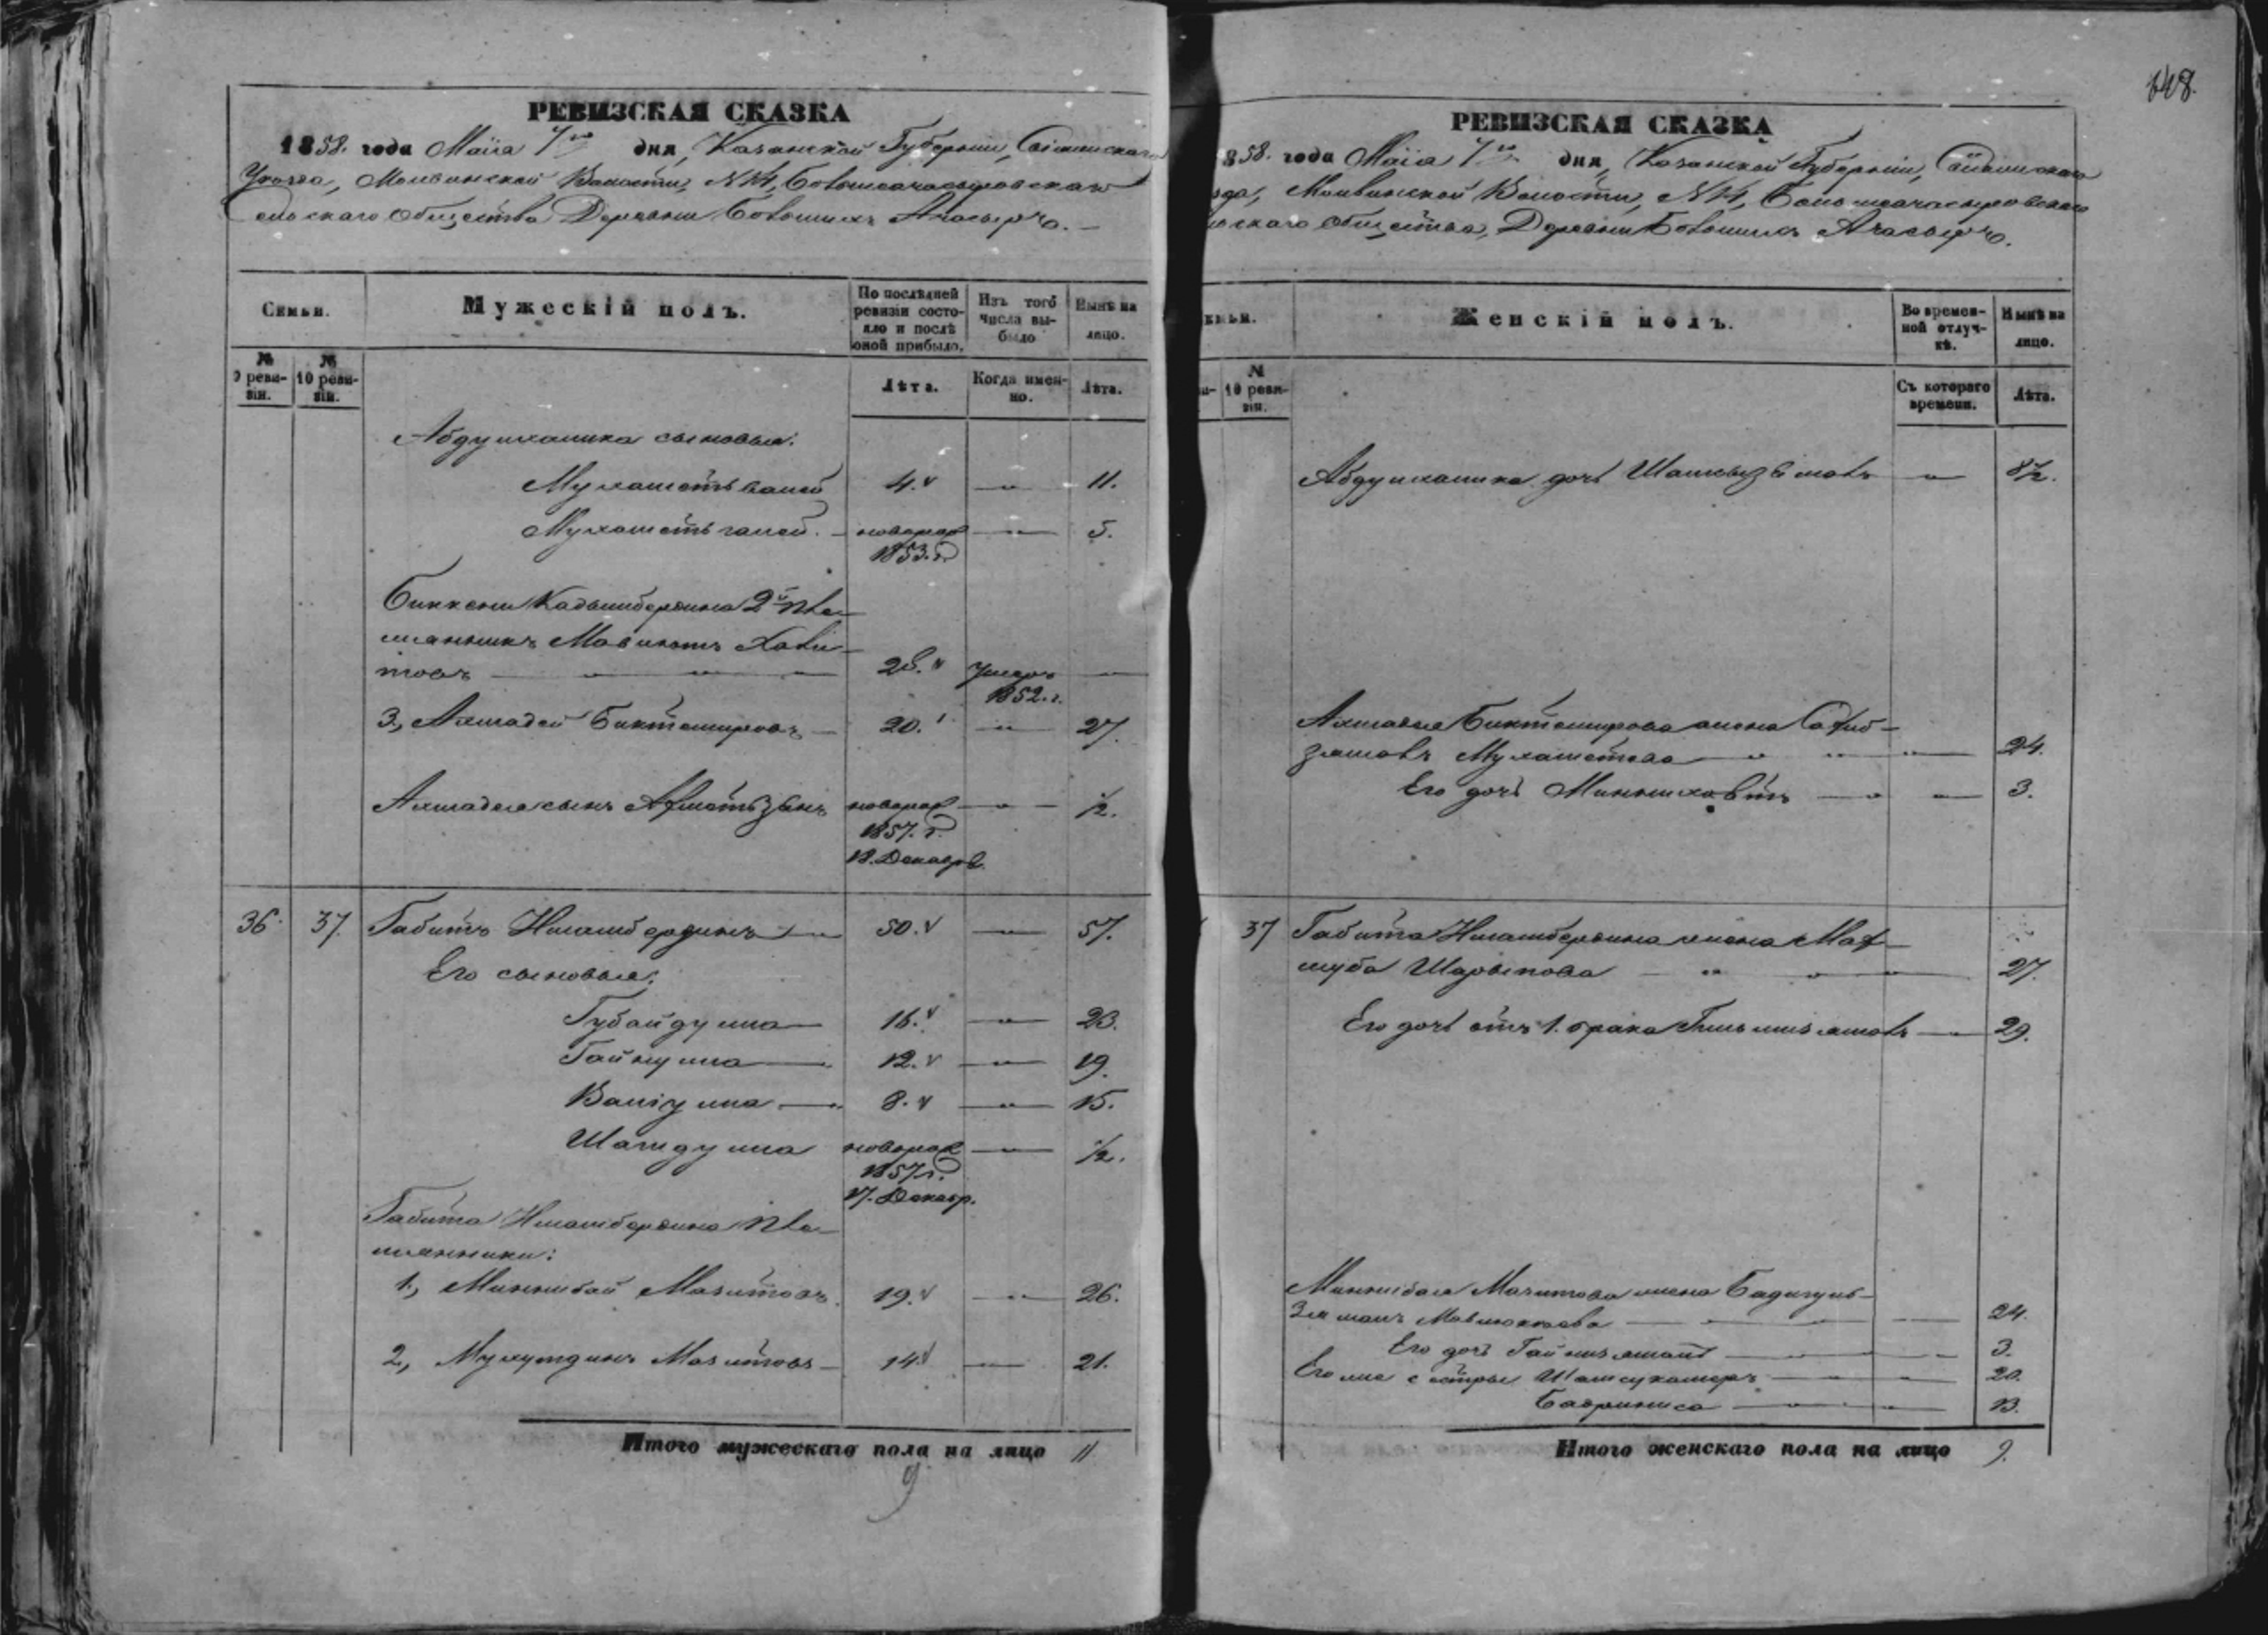 РЕВИЗСКАЯ СКАЗКА
1858. года Маiя 7го дня, Казанской Губернiи, Свiяжскаго
Уезда, Молвинской Волости, №14, Большеачасыровскаго
Сельскаго Общества Деревни Большихъ Ачасыръ.
Семьи.
Мужескiй полъ.
По послѣдней ревизiи состояло и послѣ оной прибыло.
Изъ того числа выбыло
Нынѣ на лицо.
№ 9 ревизiи.
№ 10 ревизiи.
Лѣта.
Когда именно.
Лѣта.
Абдулханика сыновья:
Мухаметьвалей 4. 11.
Мухаметьгалей. новорож 5.
1853. г.
Биккени Кадышбердина 2й пле-
мянникъ Мавлютъ Хали-
товъ 28. Умеръ
1852. г.
3, Ахмадей Биктемировъ 20. 27.
Ахмадея сынъ Ахметьзянъ новорож 1/2.
1857. г.
18. Декабря.
36. 37. Габитъ Ишамбердинъ 50. 57.
Его сыновья:
Губайдулла 16. 23.
Гайнулла 12. 19.
Валiулла 8. 15.
Шагидулла новорож 1/2.
1857 г.
17. Декабр.
Габита Ишамбердина пле-
мянники:
1, Миннибай Мазитовъ 19. 26.
2, Мухутдинъ Мазитовъ 14. 21.
Итого мужескаго пола на лицо 11
9
648.
РЕВИЗСКАЯ СКАЗКА
858. года Маiя 7го дня, Казанской Губернiи, Свiяжскаго
зда, Молвинской Волости, №14, Большеачасыровскаго
скаго Общества, Деревни Большихъ Ачасыръ.
Женскiй полъ.
Во временной отлучкѣ.
Нынѣ на лицо.
№ 10 ревизiи.
Съ котораго времени.
Лѣта.
Абдулханика дочь 8 1/2.
Ахмадея Биктемирова жена Сахиб-
зямалъ Мухаметева 24.
Его дочь 3.
37 Габита Ишамбердина жена Мах-
муба Шарыпова 27.
Его дочь отъ 1. брака 29.
Миннибая Мазитова жена
24.
Его дочь 3.
Его же сестры 20.
Бадриниса 13.
Итого женскаго пола на лицо 9.